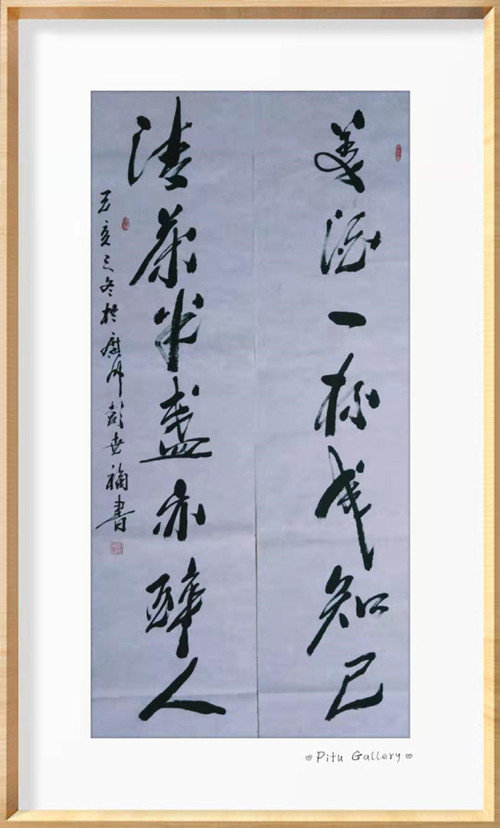 美酒一杯成知己
清茶半盏亦醉人
己亥之冬於广州彭世福書
Pitu Gallery